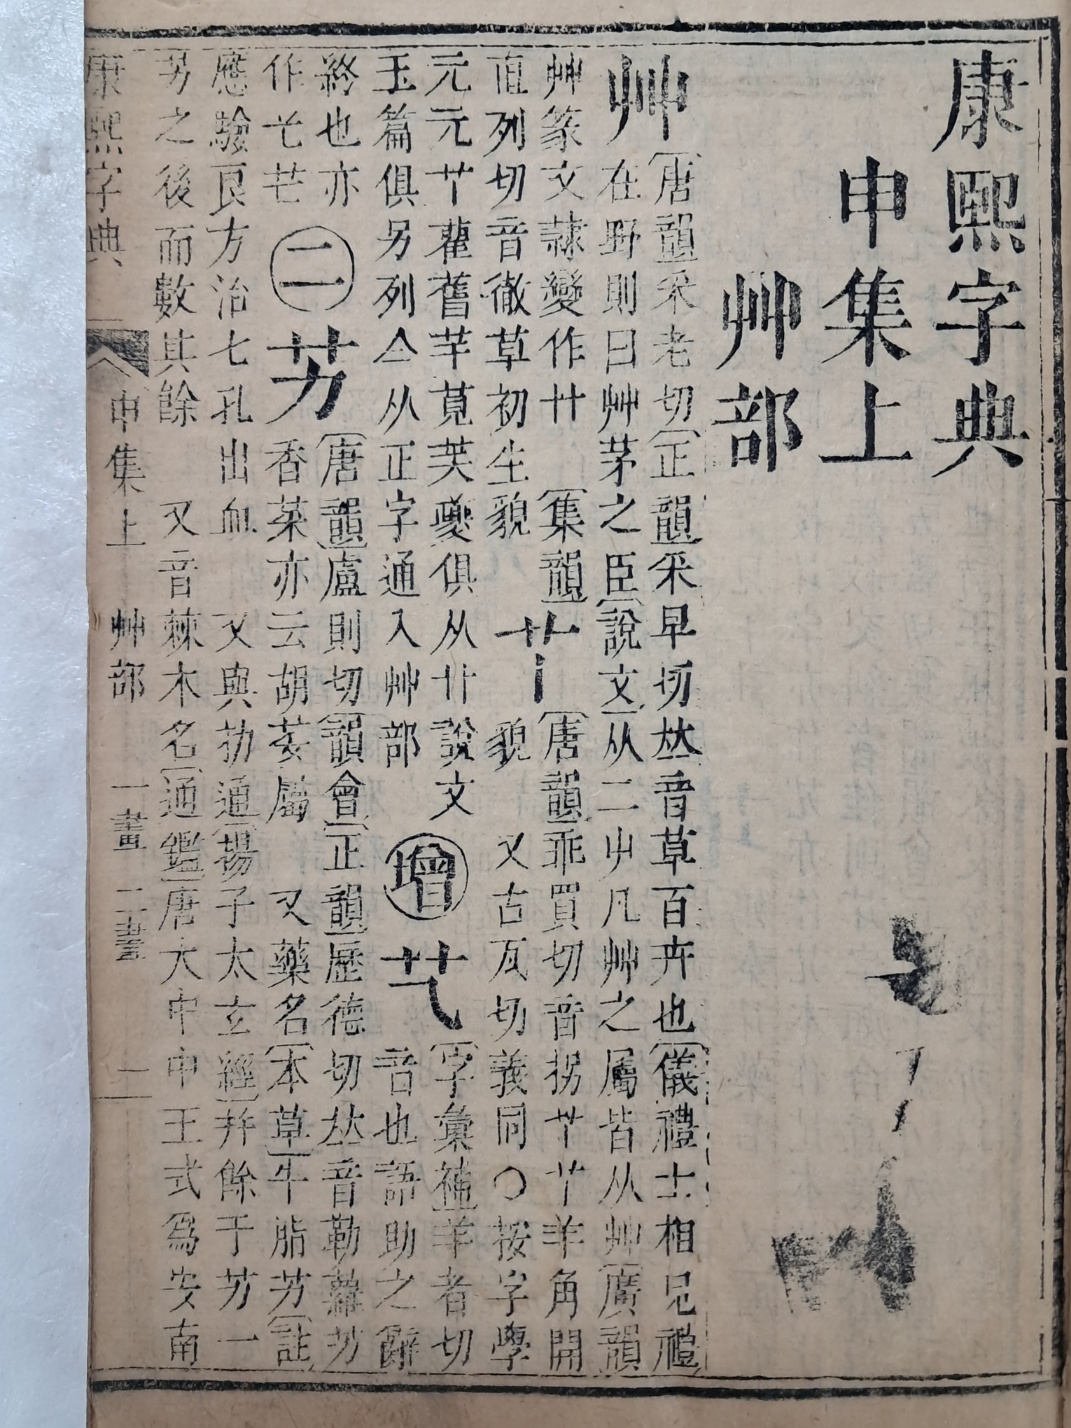 康熙字典
申集上
艸部
艸
〔唐韻〕采老切〔正韻〕采早切𠀤音草百卉也〔儀禮士相見禮
在野則曰艸茅之臣〔說文〕从二屮凡艸之屬皆从艸〔廣韻
艸篆文隷變作卄 〔集韻〕
直列切音徹草初生貌
𦫳
〔唐韻〕乖買切音拐𦫳𦫳羊角開
貌 又古瓦切義同○按字學
元元𦫳雚舊芉莧芺夔俱从卝說文
玉篇俱另列今从正字通入艸部
增
〔字彙補〕羊者切
音也語助之辭
終也亦
作芒
二
艻
〔唐韻〕盧則切〔韻會〕〔正韻〕歷德切𠀤音勒蘿艻
香菜亦云胡荽屬 又藥名〔本草〕牛脂艻〔註
應驗良方治七孔出血 又與扐通〔揚子太玄經〕幷餘于艻一
艻之後而數其餘 又音棘木名〔通鑑〕唐大中中王式爲安南
康熙字典 申集上 艸部 一畫 二畫 一